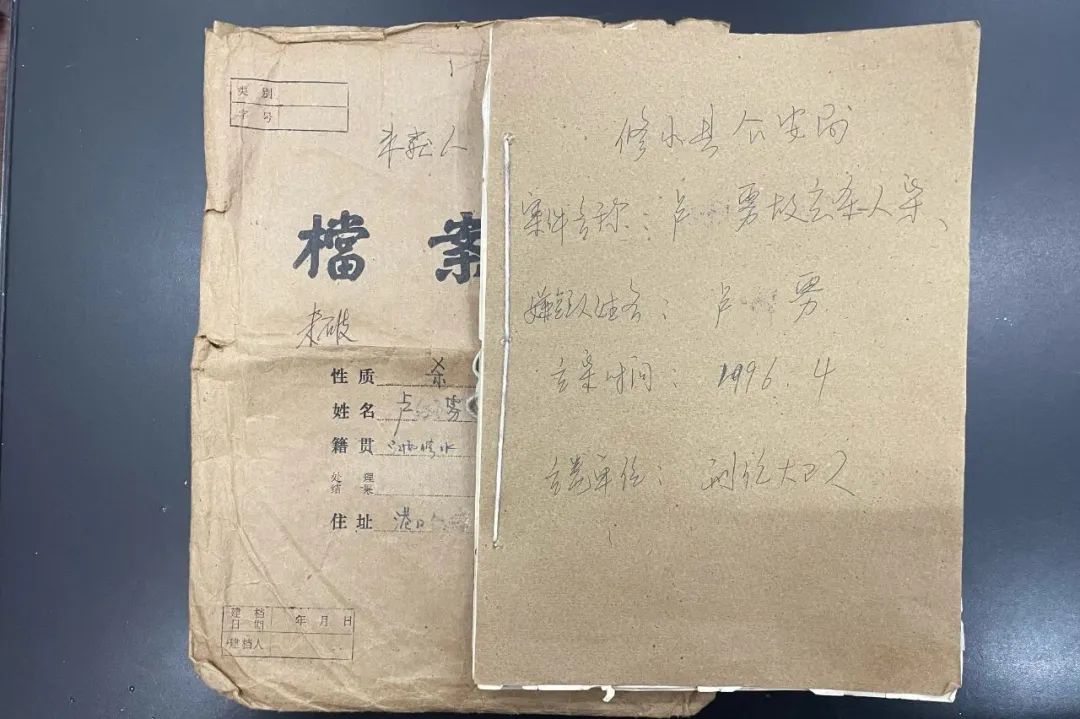 类别
字号
未
檔案
未破
性质 杀
姓名 卢 勇
籍贯 江西修水
处理结果
住址 港口
建档日期 年 月 日
建档人
修水县公安局
案件名称：卢 勇故意杀人案、
嫌疑人姓名：卢 勇
立案时间：1996.4
立卷单位：刑侦大队